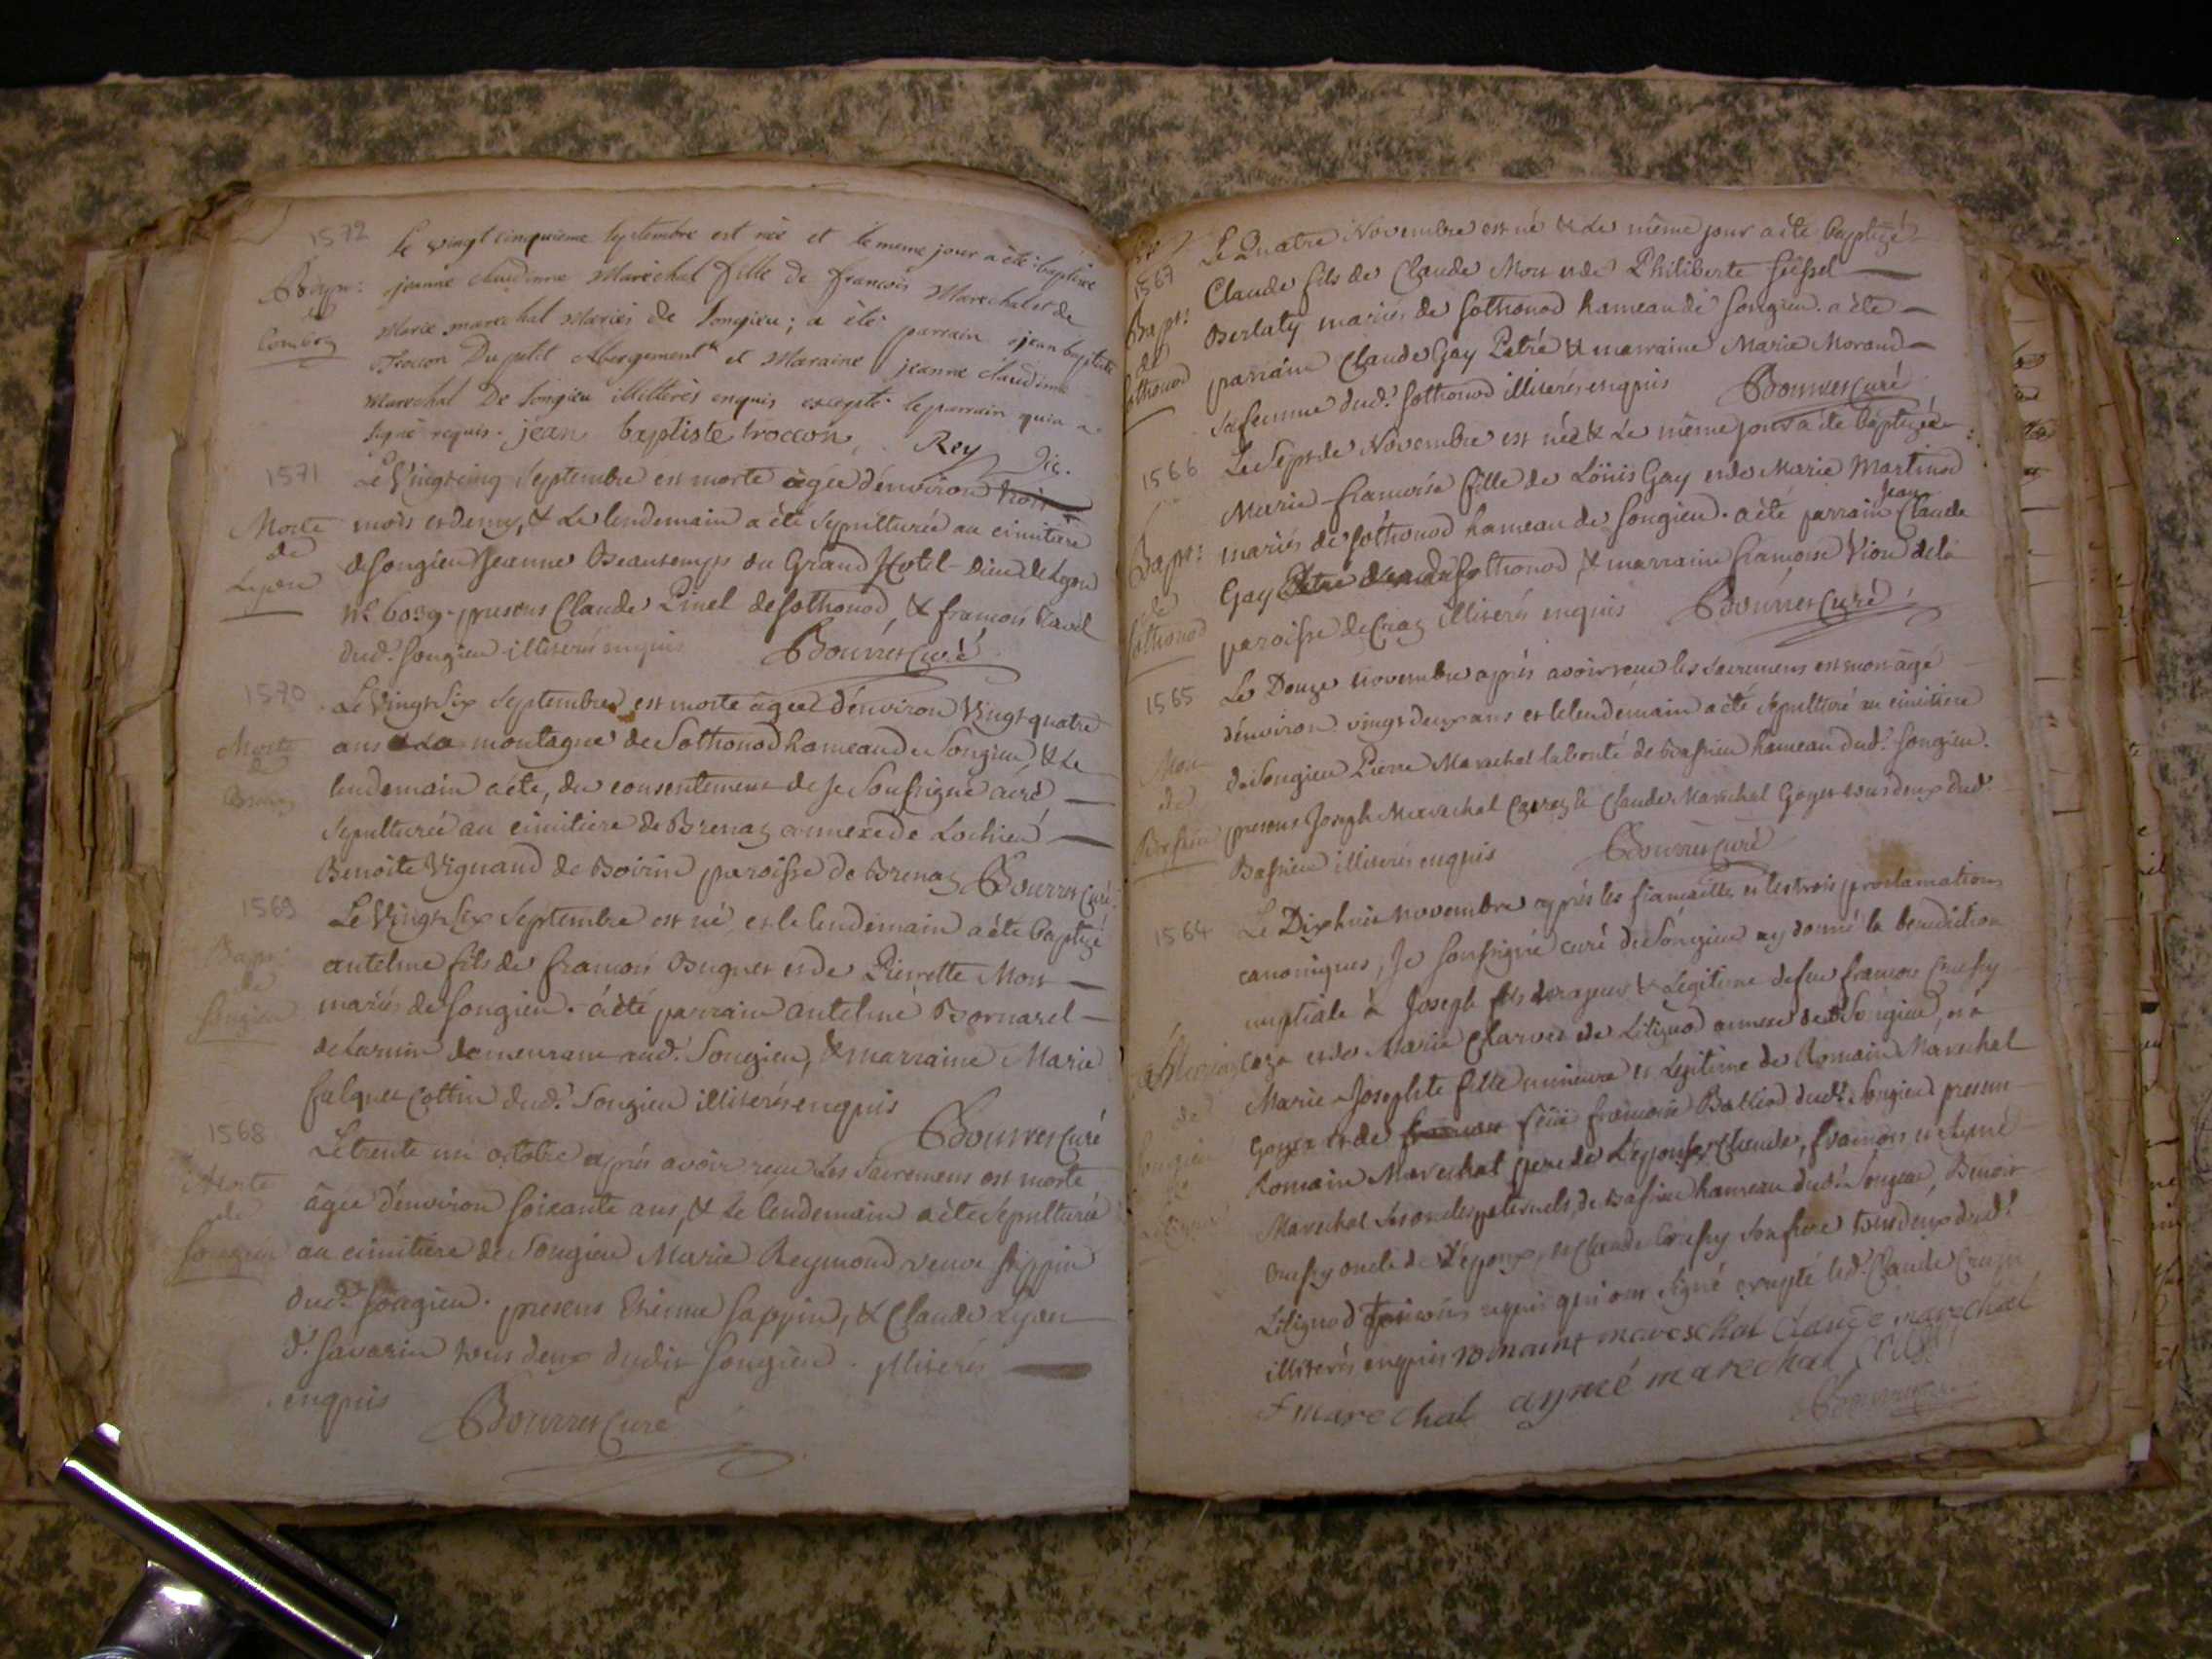 1572
Le vingt cinquieme septembre est née et le meme jour a été baptisée
Bapt: jeanne claudinne Maréchal fille de francois Marechal et de
de Marie marechal Mariés de Songieu; a été parrain jean baptiste
Trocon Du petit Abergement et Maraine jeanne claudinne
Marechal De Songieu illitterés enquis excepté le parrain qui a
signé requis. jean baptiste trocon Rey Vic.
1571
Le Vingt cinq Septembre est morte agée d'environ trois
Morte mois et demy, & Le lendemain a été Sepulturée au cimitiere
de de Songieu Jeanne Beautemps du Grand Hotel-Dieu de Lyon
Lyon N.º 6039. presens Claude Pinel de Sothonod, & francois Ravel
dud.t Songieu illiterés enquis Bourret Curé
1570
Le Vingt Six Septembre est morte agée d'environ Vingt quatre
Morte ans a La montagne de Sothonod hameau de Songieu, & Le
de lendemain a été, du consentement de Je Soussigné curé
Brenaz Sepulturée au cimitiere de Brenaz annexe de Lochieu
Benoite Vignand de Boirin paroisse de Brenaz Bourret Curé
1569
Le Vingt Six Septembre est né, et le lendemain a été baptizé
Bapt: antelme fils de francois Bugnet et de Pierrette Mon
de mariés de Songieu. a été parrain antelme Bornarel
Songieu de Larnin demeurant aud.t Songieu, & marraine Marie
fulquet Cottin dud.t Songieu illiterés enquis
Bourret Curé
1568
Le trente un octobre après avoir reçu Les Sacremens est morte
Morte âgée d'environ soixante ans, & Le lendemain a été Sépulturée
de au cimitiere de Songieu Marie Reymond veuve Sappin
Songieu dud.t Songieu. presens Etienne Sappin, & Claude Lyon
d.t Savarin tous deux dudit Songieu. illiterés
enquis
Bourret Curé
1567
Le Quatre Novembre est né & Le même jour a été baptizé
Bapt: Claude fils de Claude Mon et de Philiberte
de Berlaty mariés de Sothonod hameau de Songieu. a été
Sothonod parrain Claude Gay Patré & marraine Marie Morand
Sa femme dud.t Sothonod illiterés enquis Bourret Curé
1566
Le Sept de Novembre est née & Le même jour a été baptizée
Marie-francoise fille de Loüis Gay et de Marie Martinod
Bapt: mariés de Sothonod hameau de Songieu. a été parrain Jean Claude
de Gay Sothonod, & marraine francoise Vion de la
Sothonod paroisse de Craz illiterés enquis Bourret Curé
1565
Le Douze Novembre après avoir reçu les Sacremens est mort âgé
d'environ vingt deux ans et le lendemain a été Sépulturé au cimitiere
Mort de Songieu Pierre Marechal labonté de Bassieu hameau dud.t Songieu.
de presens Joseph Marechal & Claude Marechal Goyet tous deux dud.t
Bassieu Bassieu illiterés enquis Bourret Curé
1564
Le Dix huit Novembre après les fiancailles et les trois proclamations
canoniques, Je Soussigné curé de Songieu ay donné la benediction
nuptiale à Joseph fils majeur & Legitime de feu francois
et de Marie Charvet de Litignod annexe de Songieu, et à
Marie-Josephte fille mineure et Legitime de Romain Marechal
de Goyet et de feüe francoise Balliod dud.t Songieu presens
Songieu Romain Marechal pere de L'epouse, Claude, francois et Aymé
& Marechal Ses oncles paternels, de Bassieu hameau dud.t Songieu, Benoit
Litignod oncle de L'epoux, et Claude Son frere tous deux dud.t
Litignod requis qui ont Signé excepté led.t Claude
illiterés enquis romaint mareschal claude marechal
f marechal aymé marechal
Bourret